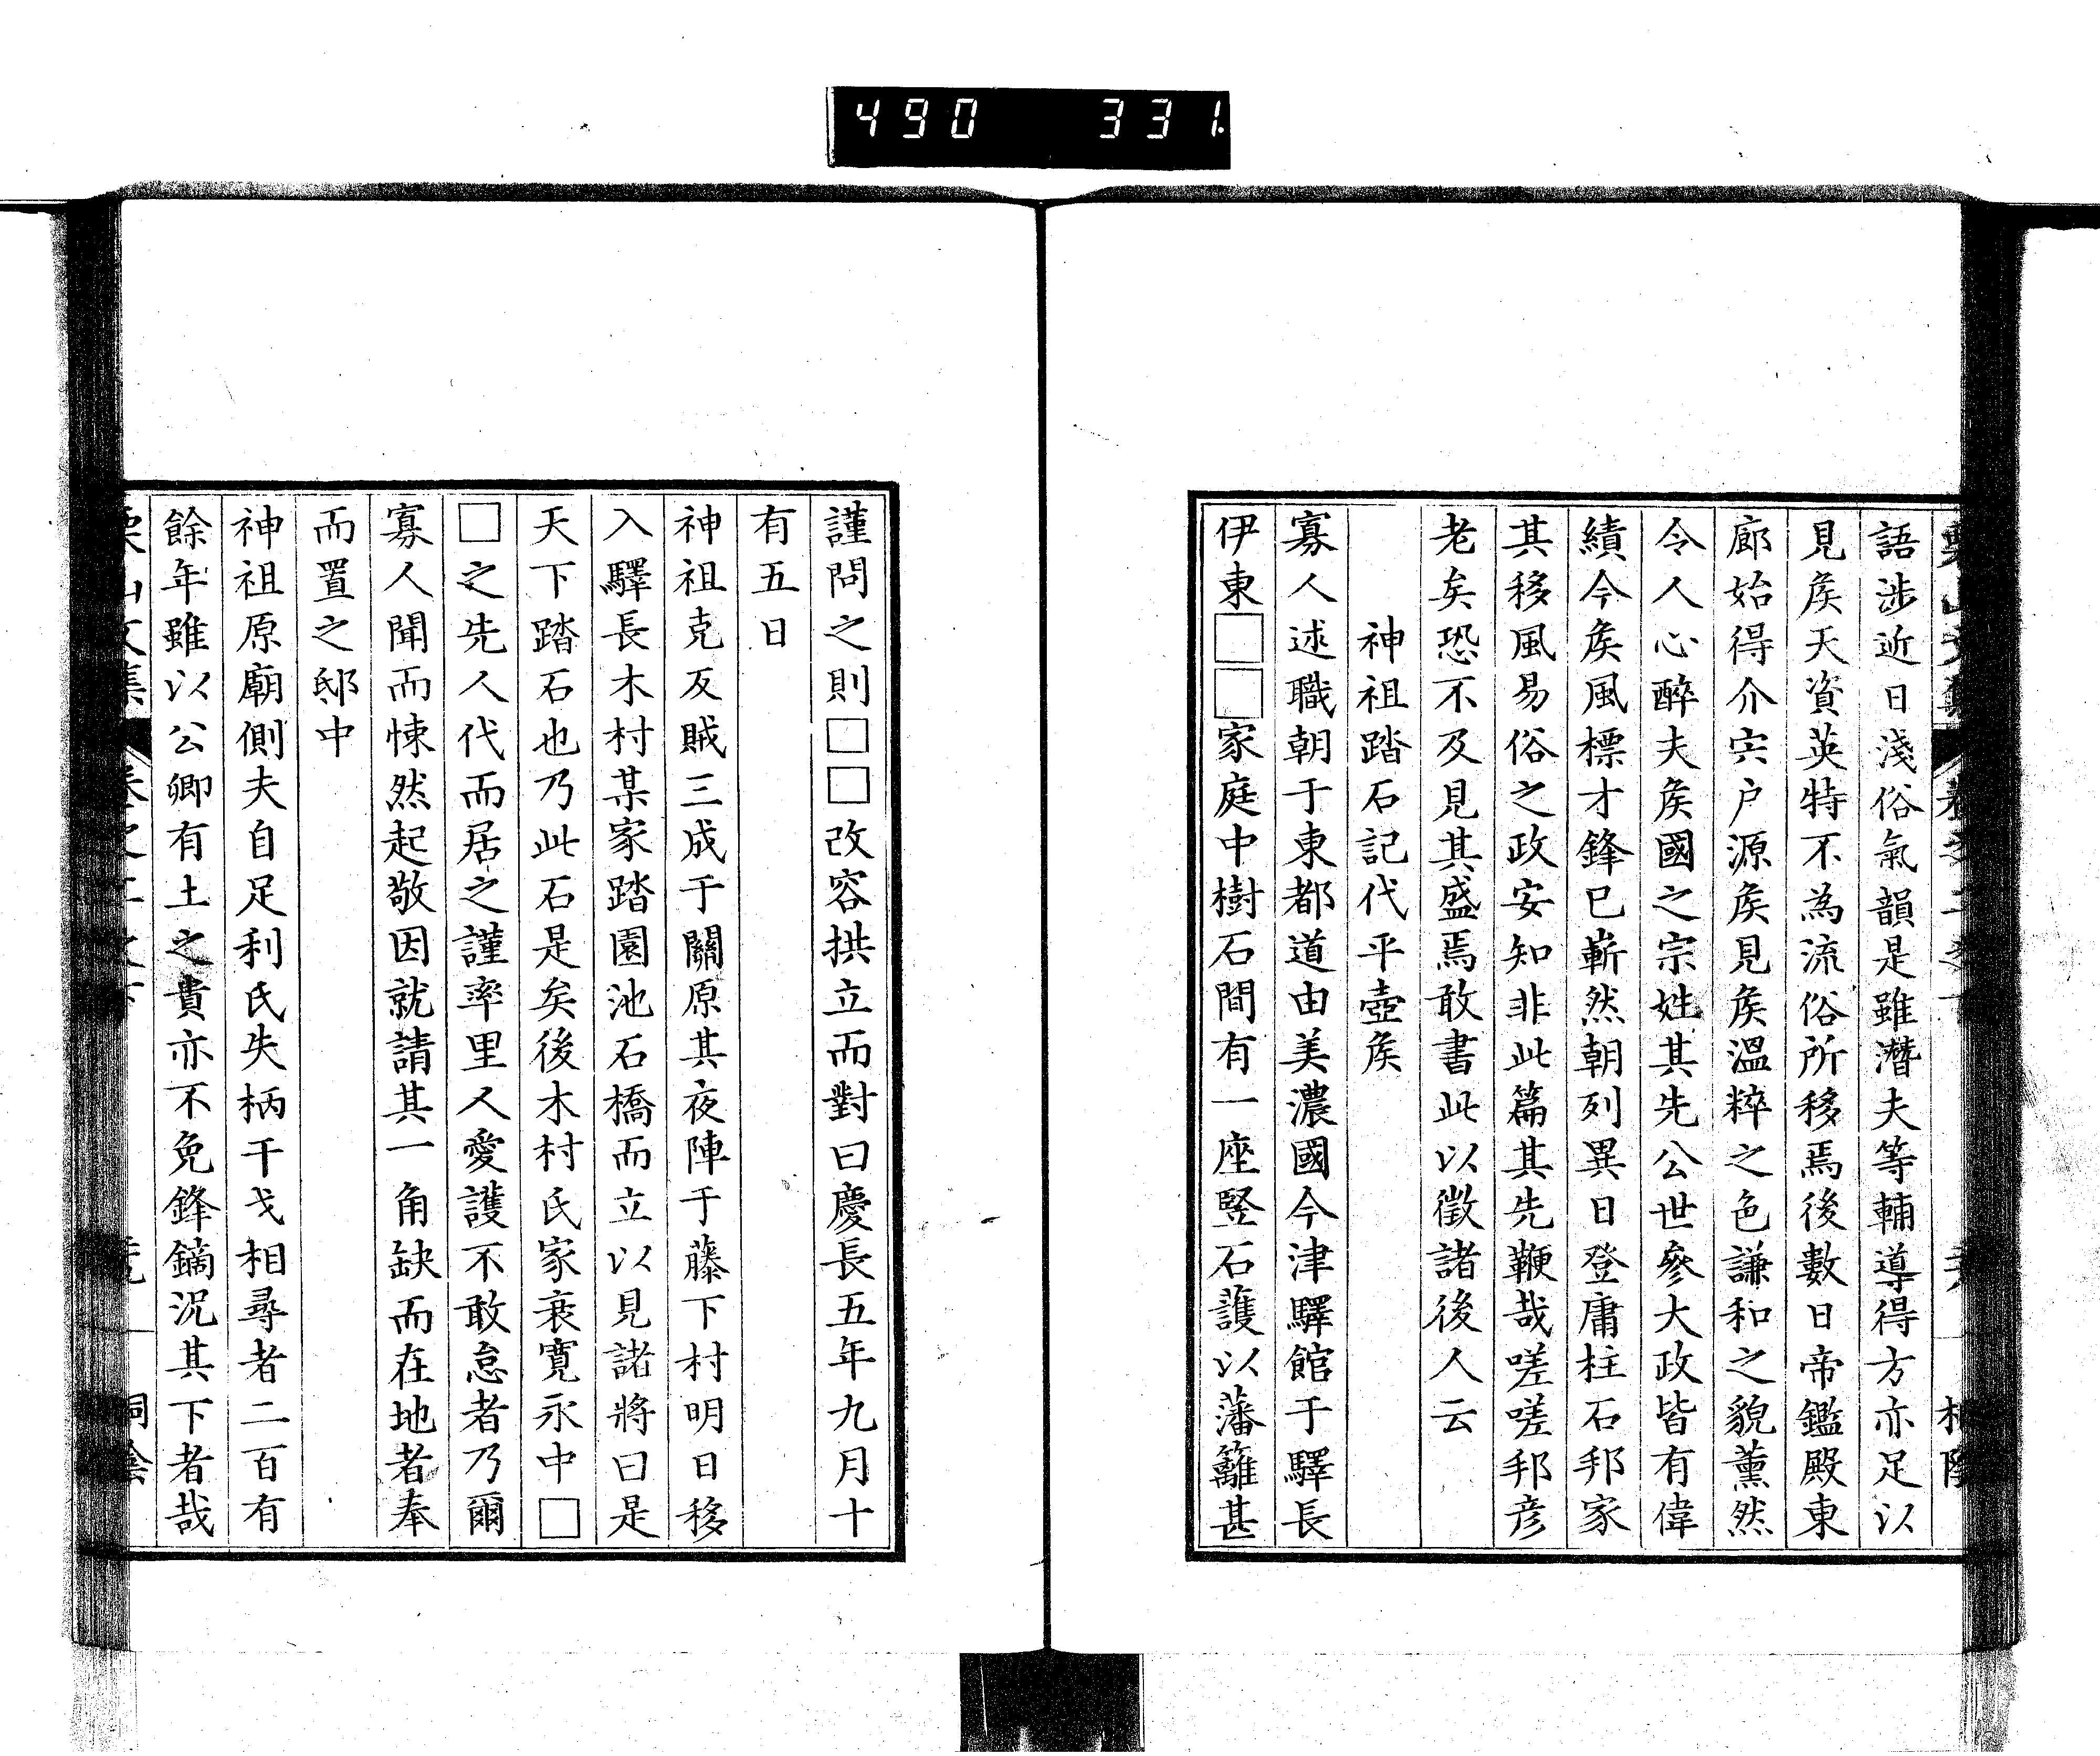 490 331.
語涉近日淺俗氣韻是雖潛夫等輔導得方亦足以
見矦天資英特不為流俗所移焉後數日帝鑑殿東
廊始得介宍户源矦見矦溫粹之色謙和之貌薰然
令人心醉夫矦國之宗姓其先公世參大政皆有偉
績今矦風標才鋒已嶄然朝列異日登庸柱石邦家
其移風易俗之政安知非此篇其先鞭哉嗟嗟邦彦
老矣恐不及見其盛焉敢書此以徵諸後人云
神祖踏石記代平壺矦
寡人述職朝于東都道由美濃國今津驛館于驛長
伊東□□家庭中樹石間有一座竪石護以藩籬甚
謹問之則□□改容拱立而對曰慶長五年九月十
有五日
神祖克反賊三成于關原其夜陣于藤下村明日移
入驛長木村某家踏園池石橋而立以見諸將曰是
天下踏石也乃此石是矣後木村氏家衰寬永中□
□之先人代而居之謹率里人愛護不敢怠者乃爾
寡人聞而悚然起敬因就請其一角缺而在地者奉
而置之邸中
神祖原廟側夫自足利氏失柄干戈相尋者二百有
餘年雖以公卿有土之貴亦不免鋒鏑況其下者哉